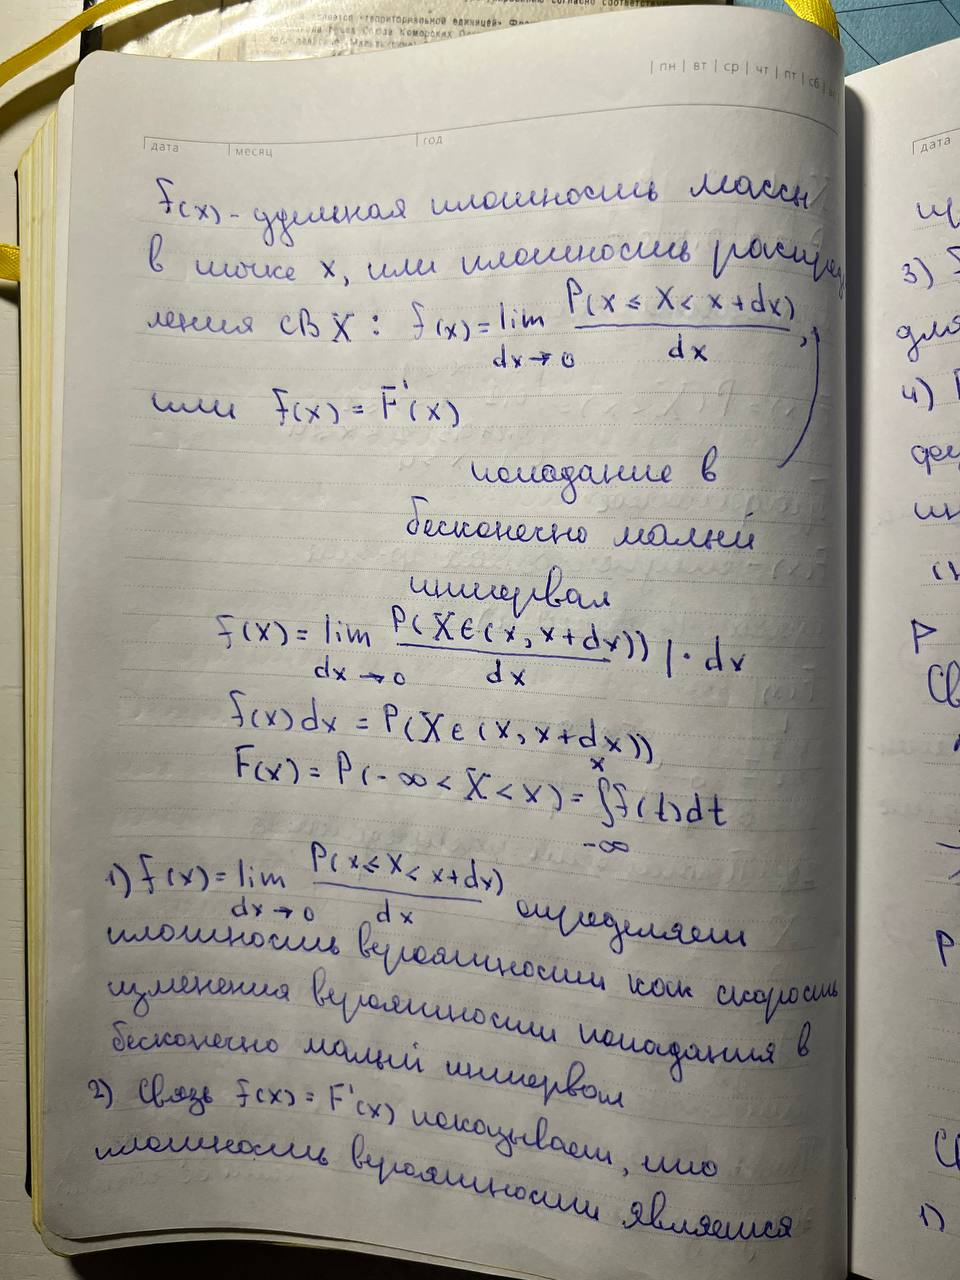 является «территориальной единицей»
| пн | вт | ср | чт | пт | сб |
дата месяц год
f(x) - удельная плотность массы
в точке x, или плотность распреде
ления СВ X : f(x) = lim P(x ≤ X < x+dx) ,
dx→0 dx
или f(x) = F'(x)
попадание в
бесконечно малый
интервал
f(x) = lim P(X∈(x, x+dx)) | · dx
dx→0 dx
f(x)dx = P(X∈(x, x+dx))
F(x) = P(-∞ < X < x) = ∫ f(t)dt
x
-∞
1) f(x) = lim P(x ≤ X < x+dx) определяет
dx→0 dx
плотность вероятности как скорость
изменения вероятности попадания в
бесконечно малый интервал
2) Связь f(x) = F'(x) показывает, что
плотность вероятности является
дата
3)
для
4)
P
Св
P
1)